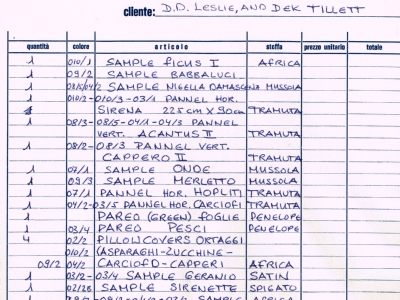 cliente: D.D. LESLIE, AND DEK TILLETT
quantità colore articolo stoffa prezzo unitario totale
1 010/1 SAMPLE FICUS I AFRICA
1 09/2 SAMPLE BABBALUCI
1 08/5/04/2 SAMPLE NIGELLA DAMASCENA MUSSOLA
1 010/2-010/3-03/1 PANNEL HOR.
SIRENA 225 cm X 90 cm TRAMUTA
1 08/3-08/5-04/1-04/3 PANNEL
VERT. ACANTUS II TRAMUTA
1 08/2-08/3 PANNEL VERT.
CAPPERO II TRAMUTA
1 07/1 SAMPLE ONDE MUSSOLA
1 09/3 SAMPLE MERLETTO MUSSOLA
1 07/1 PANNEL HOR. HOPLITI TRAMUTA
1 04/2-03/5 PANNEL HOR. CARCIOFI TRAMUTA
1 PAREO (GREEN) FOGLIE PENELOPE
1 03/4 PAREO PESCI PENELOPE
4 02/2 PILLOWCOVERS ORTAGGI
010/2 (ASPARAGHI-ZUCCHINE-
09/2 04/2 CARCIOFO-CAPPERI AFRICA
1 03/2-03/4 SAMPLE GERANIO SATIN
1 02/28 SAMPLE SIRENETTE SPIGATO
SAMPLE AFRICA